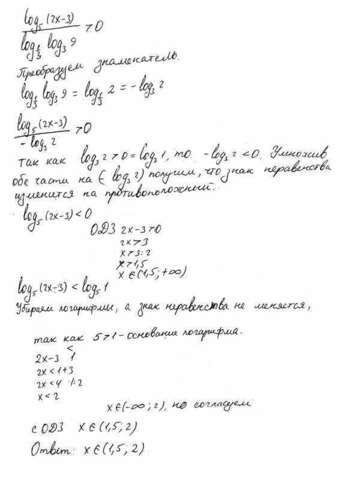 log₅(2x-3) / log_{1/3} log₃ 9 > 0
Преобразуем знаменатель.
log_{1/3} log₃ 9 = log_{1/3} 2 = -log₃ 2
log₅(2x-3) / -log₃ 2 > 0
так как log₃ 2 > 0 = log₃ 1, то -log₃ 2 < 0. Умножив
обе части на (-log₃ 2) получим, что знак неравенства
изменится на противоположный.
log₅(2x-3) < 0
ОДЗ 2x-3>0
2x>3
x>3:2
x>1,5
x∈(1,5;+∞)
log₅(2x-3) < log₅ 1
Убираем логарифмы, а знак неравенства не меняется,
так как 5>1 - основание логарифма.
2x-3 < 1
2x<1+3
2x<4 |:2
x<2
x∈(-∞;2), но согласуем
с ОДЗ x∈(1,5;2)
Ответ: x∈(1,5;2)